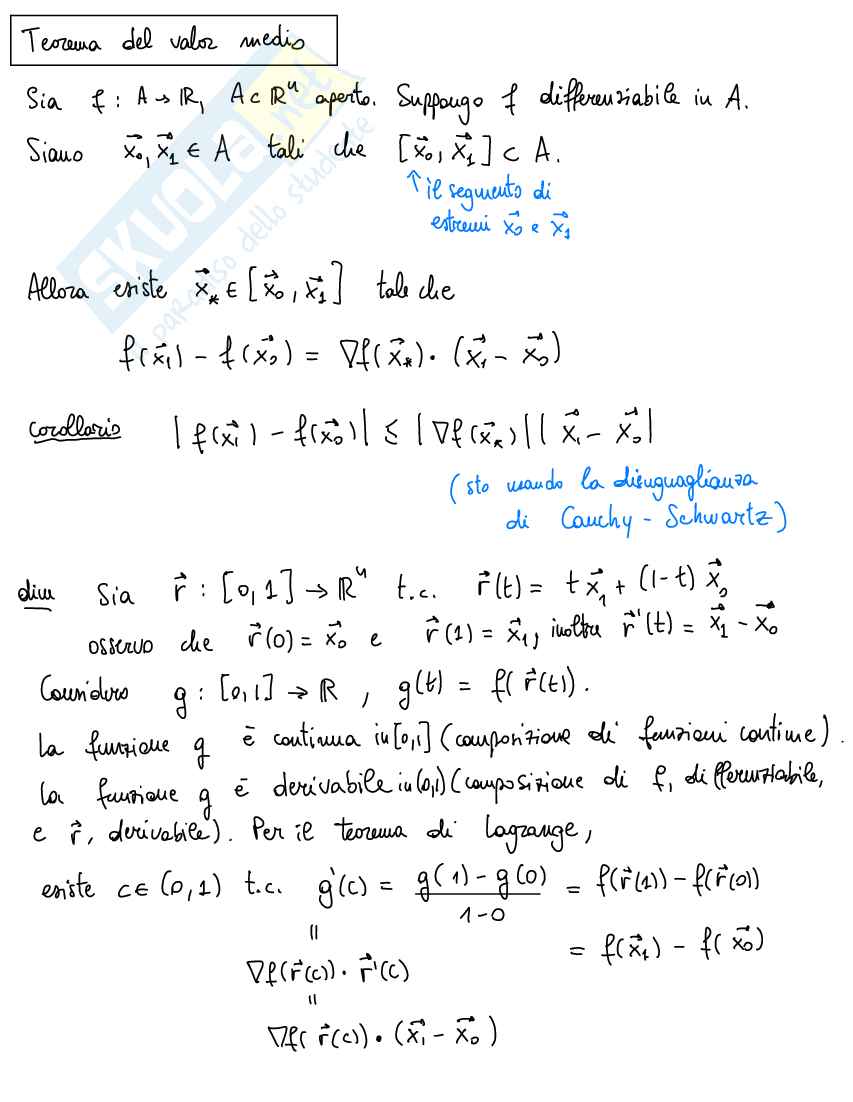 Teorema del valor medio
Sia f : A → ℝ, A ⊂ ℝⁿ aperto. Suppongo f differenziabile in A.
Siano x⃗₀, x⃗₁ ∈ A tali che [x⃗₀, x⃗₁] ⊂ A.
↑ il segmento di
estremi x⃗₀ e x⃗₁
SKUOLA.net
paradiso dello studente
Allora esiste x⃗* ∈ [x⃗₀, x⃗₁] tale che
f(x⃗₁) - f(x⃗₀) = ∇f(x⃗*) · (x⃗₁ - x⃗₀)
Corollario |f(x⃗₁) - f(x⃗₀)| ≤ |∇f(x⃗*)| |x⃗₁ - x⃗₀|
(sto usando la disuguaglianza
di Cauchy - Schwartz)
dim Sia r⃗ : [0,1] → ℝⁿ t.c. r⃗(t) = t x⃗₁ + (1-t) x⃗₀
osservo che r⃗(0) = x⃗₀ e r⃗(1) = x⃗₁, inoltre r⃗'(t) = x⃗₁ - x⃗₀
Considero g : [0,1] → ℝ, g(t) = f(r⃗(t)).
La funzione g è continua in [0,1] (composizione di funzioni continue).
La funzione g è derivabile in (0,1) (composizione di f, differenziabile,
e r⃗, derivabile). Per il teorema di Lagrange,
esiste c ∈ (0,1) t.c. g'(c) = g(1) - g(0) / 1-0 = f(r⃗(1)) - f(r⃗(0))
= f(x⃗₁) - f(x⃗₀)
=
∇f(r⃗(c)) · r⃗'(c)
=
∇f(r⃗(c)) · (x⃗₁ - x⃗₀)